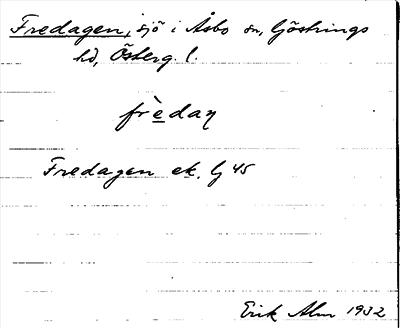 Fredagen, sjö i Åsbo sn, Göstrings
hd, Österg. l.
frèdaŋ
Fredagen ek. G 45
Erik Alm 1932